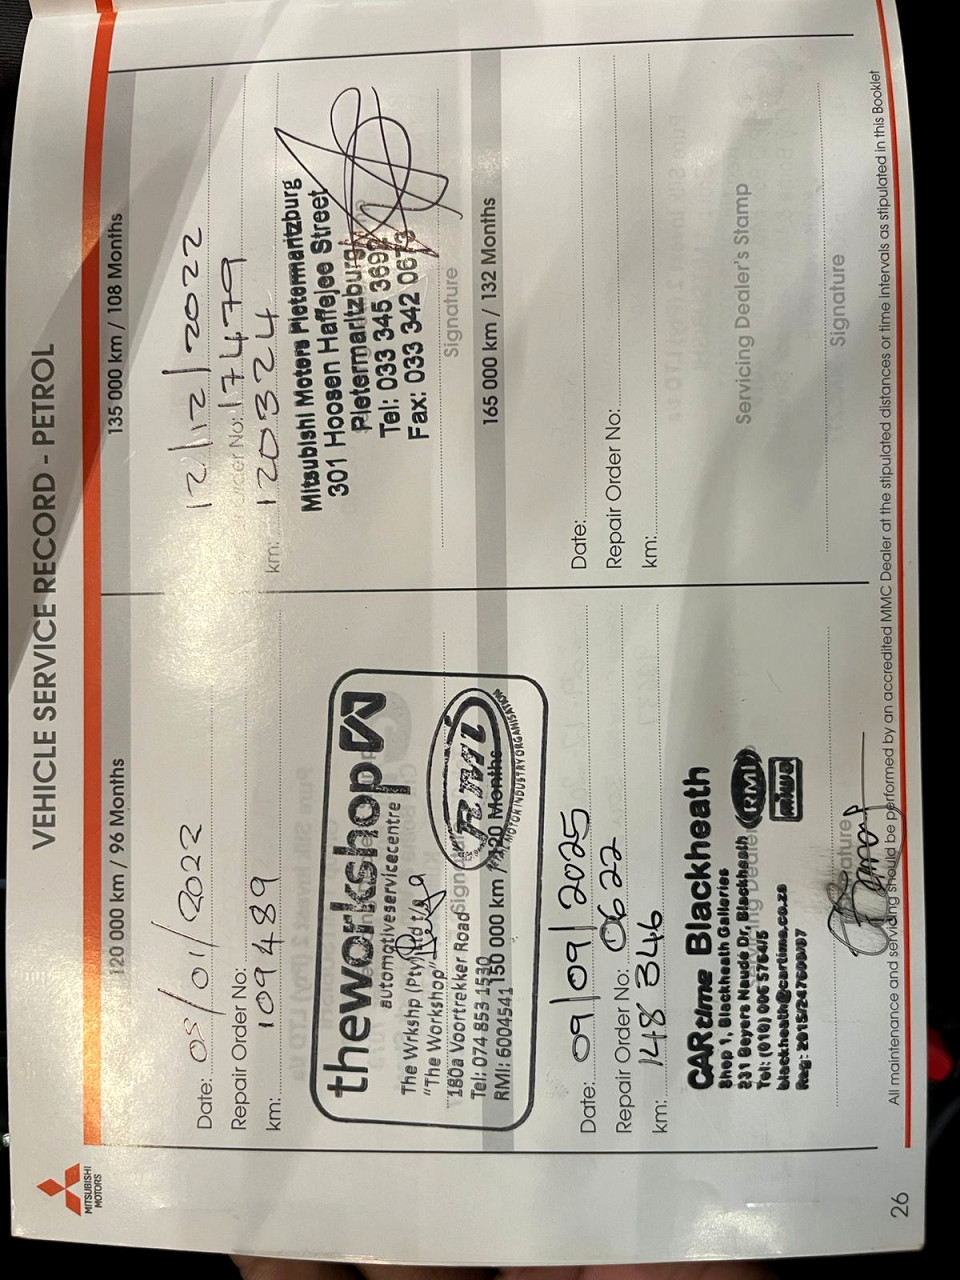 MITSUBISHI
MOTORS
VEHICLE SERVICE RECORD - PETROL
120 000 km / 96 Months
Date: 05/01/2022
Repair Order No:
km: 109489
theworkshop
automotiveservicecentre
The Wrkshp (Pty) Ltd t/a
"The Workshop"
180a Voortrekker Road
Tel: 074 853 1530
RMI: 6004541
rmi
MOTOR INDUSTRY ORGANISATION
135 000 km / 108 Months
12/12/2022
Order No: 17479
km: 120324
Mitsubishi Motors Pietermaritzburg
301 Hoosen Haffejee Street
Pietermaritzburg
Tel: 033 345 3692
Fax: 033 342 0673
Signature
150 000 km / 120 Months
Date: 09/09/2025
Repair Order No: 0622
km: 148 346
CARtime Blackheath
Shop 1, Blackheath Galleries
231 Beyers Naude Dr, Blackheath
Tel: (010) 006 5764/5
blackheath@cartime.co.za
RMI
miwa
165 000 km / 132 Months
Date:
Repair Order No:
km:
Servicing Dealer's Stamp
Signature
All maintenance and servicing should be performed by an accredited MMC Dealer at the stipulated distances or time intervals as stipulated in this Booklet
26